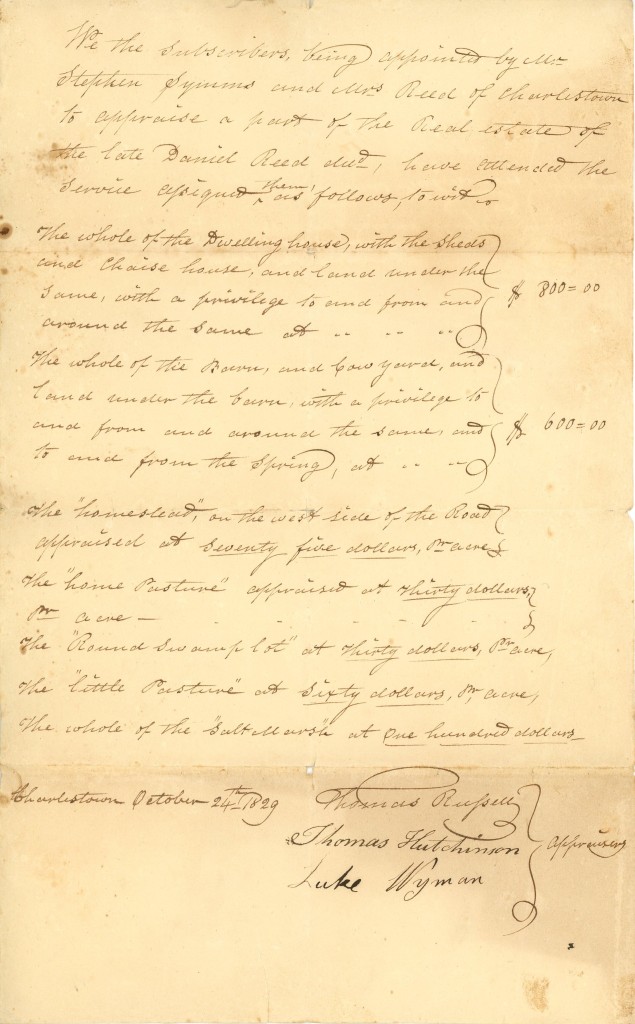 We the Subscribers, being appointed by Mr
Stephen Symms and Mrs Reed of Charlestown
to appraise a part of the Real estate of
the late Daniel Reed decd, have attended the
Service assigned them, as follows, to wit
The whole of the Dwelling house, with the sheds
and Chaise house, and land under the
Same, with a privilege to and from and $ 800=00
around the same at " " "
The whole of the Barn, and Cow yard, and
land under the barn, with a privilege to
and from and around the same, and $ 600=00
to and from the Spring, at " "
The "homestead", on the west side of the Road
appraised at Seventy five dollars, Pr acre
The "home Pasture" appraised at Thirty dollars,
Pr acre —
The "Round Swamp lot" at Thirty dollars, Pr acre,
The "little Pasture" at Sixty dollars, Pr, acre,
The whole of the "Salt Marsh" at One hundred dollars
Charlestown October 24th 1829
Thomas Russell
Thomas Hutchinson appraisers
Luke Wyman